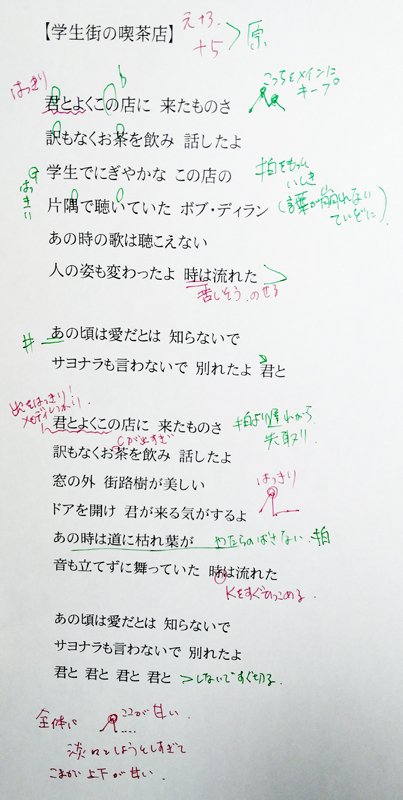 【学生街の喫茶店】
+3
+5 > 原
はっきり
b
君とよくこの店に 来たものさ
こっちをメインに
キープ
訳もなくお茶を飲み 話したよ
学生でにぎやかな この店の
拍をもっと
いしき
(言葉が崩れない
ていどに)
片隅で聴いていた ボブ・ディラン
あの時の歌は聴こえない
人の姿も変わったよ 時は流れた
苦しそう のせる
# あの頃は愛だとは 知らないで
サヨナラも言わないで 別れたよ 君と
出をはっきり!
君とよくこの店に 来たものさ
拍より遅れから
先取り
訳もなくお茶を飲み 話したよ
窓の外 街路樹が美しい
はっきり
ドアを開け 君が来る気がするよ
あの時は道に枯れ葉が
のばさない 拍
音も立てずに舞っていた 時は流れた
Kをすぐひっこめる
あの頃は愛だとは 知らないで
サヨナラも言わないで 別れたよ
君と 君と 君と 君と >しないですぐ切る
全体に ここが甘い
淡々としようとしすぎて
こまかい上下が甘い